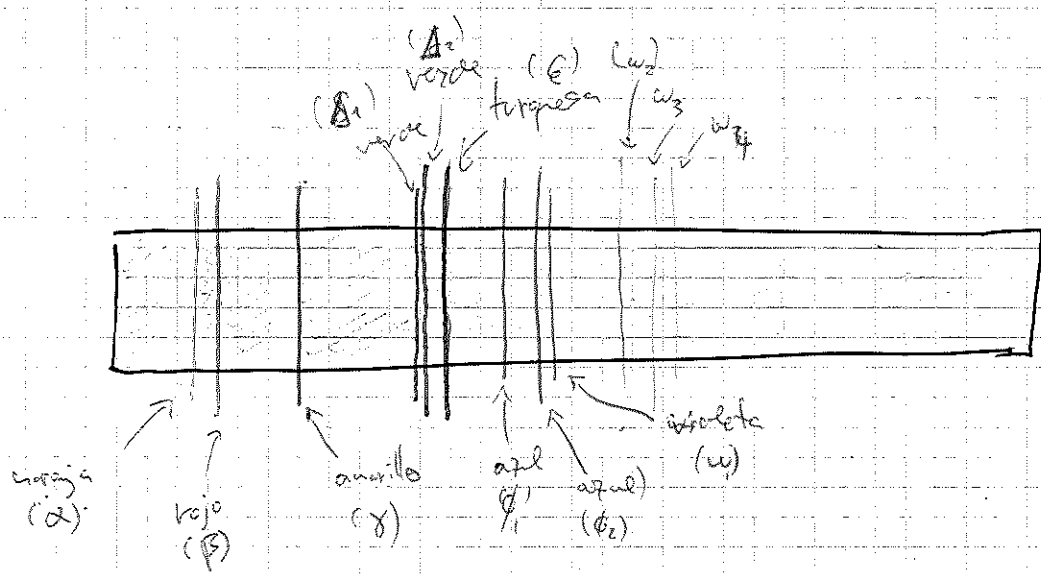 (Δ₂)
verde
(ε)
turquesa
(Δ₁)
verde
(ω₂)
ω₃
ω₄
naranja
(α)
rojo
(β)
amarillo
(γ)
azul
(ϕ₁)
azul)
(ϕ₂)
violeta
(ω₁)